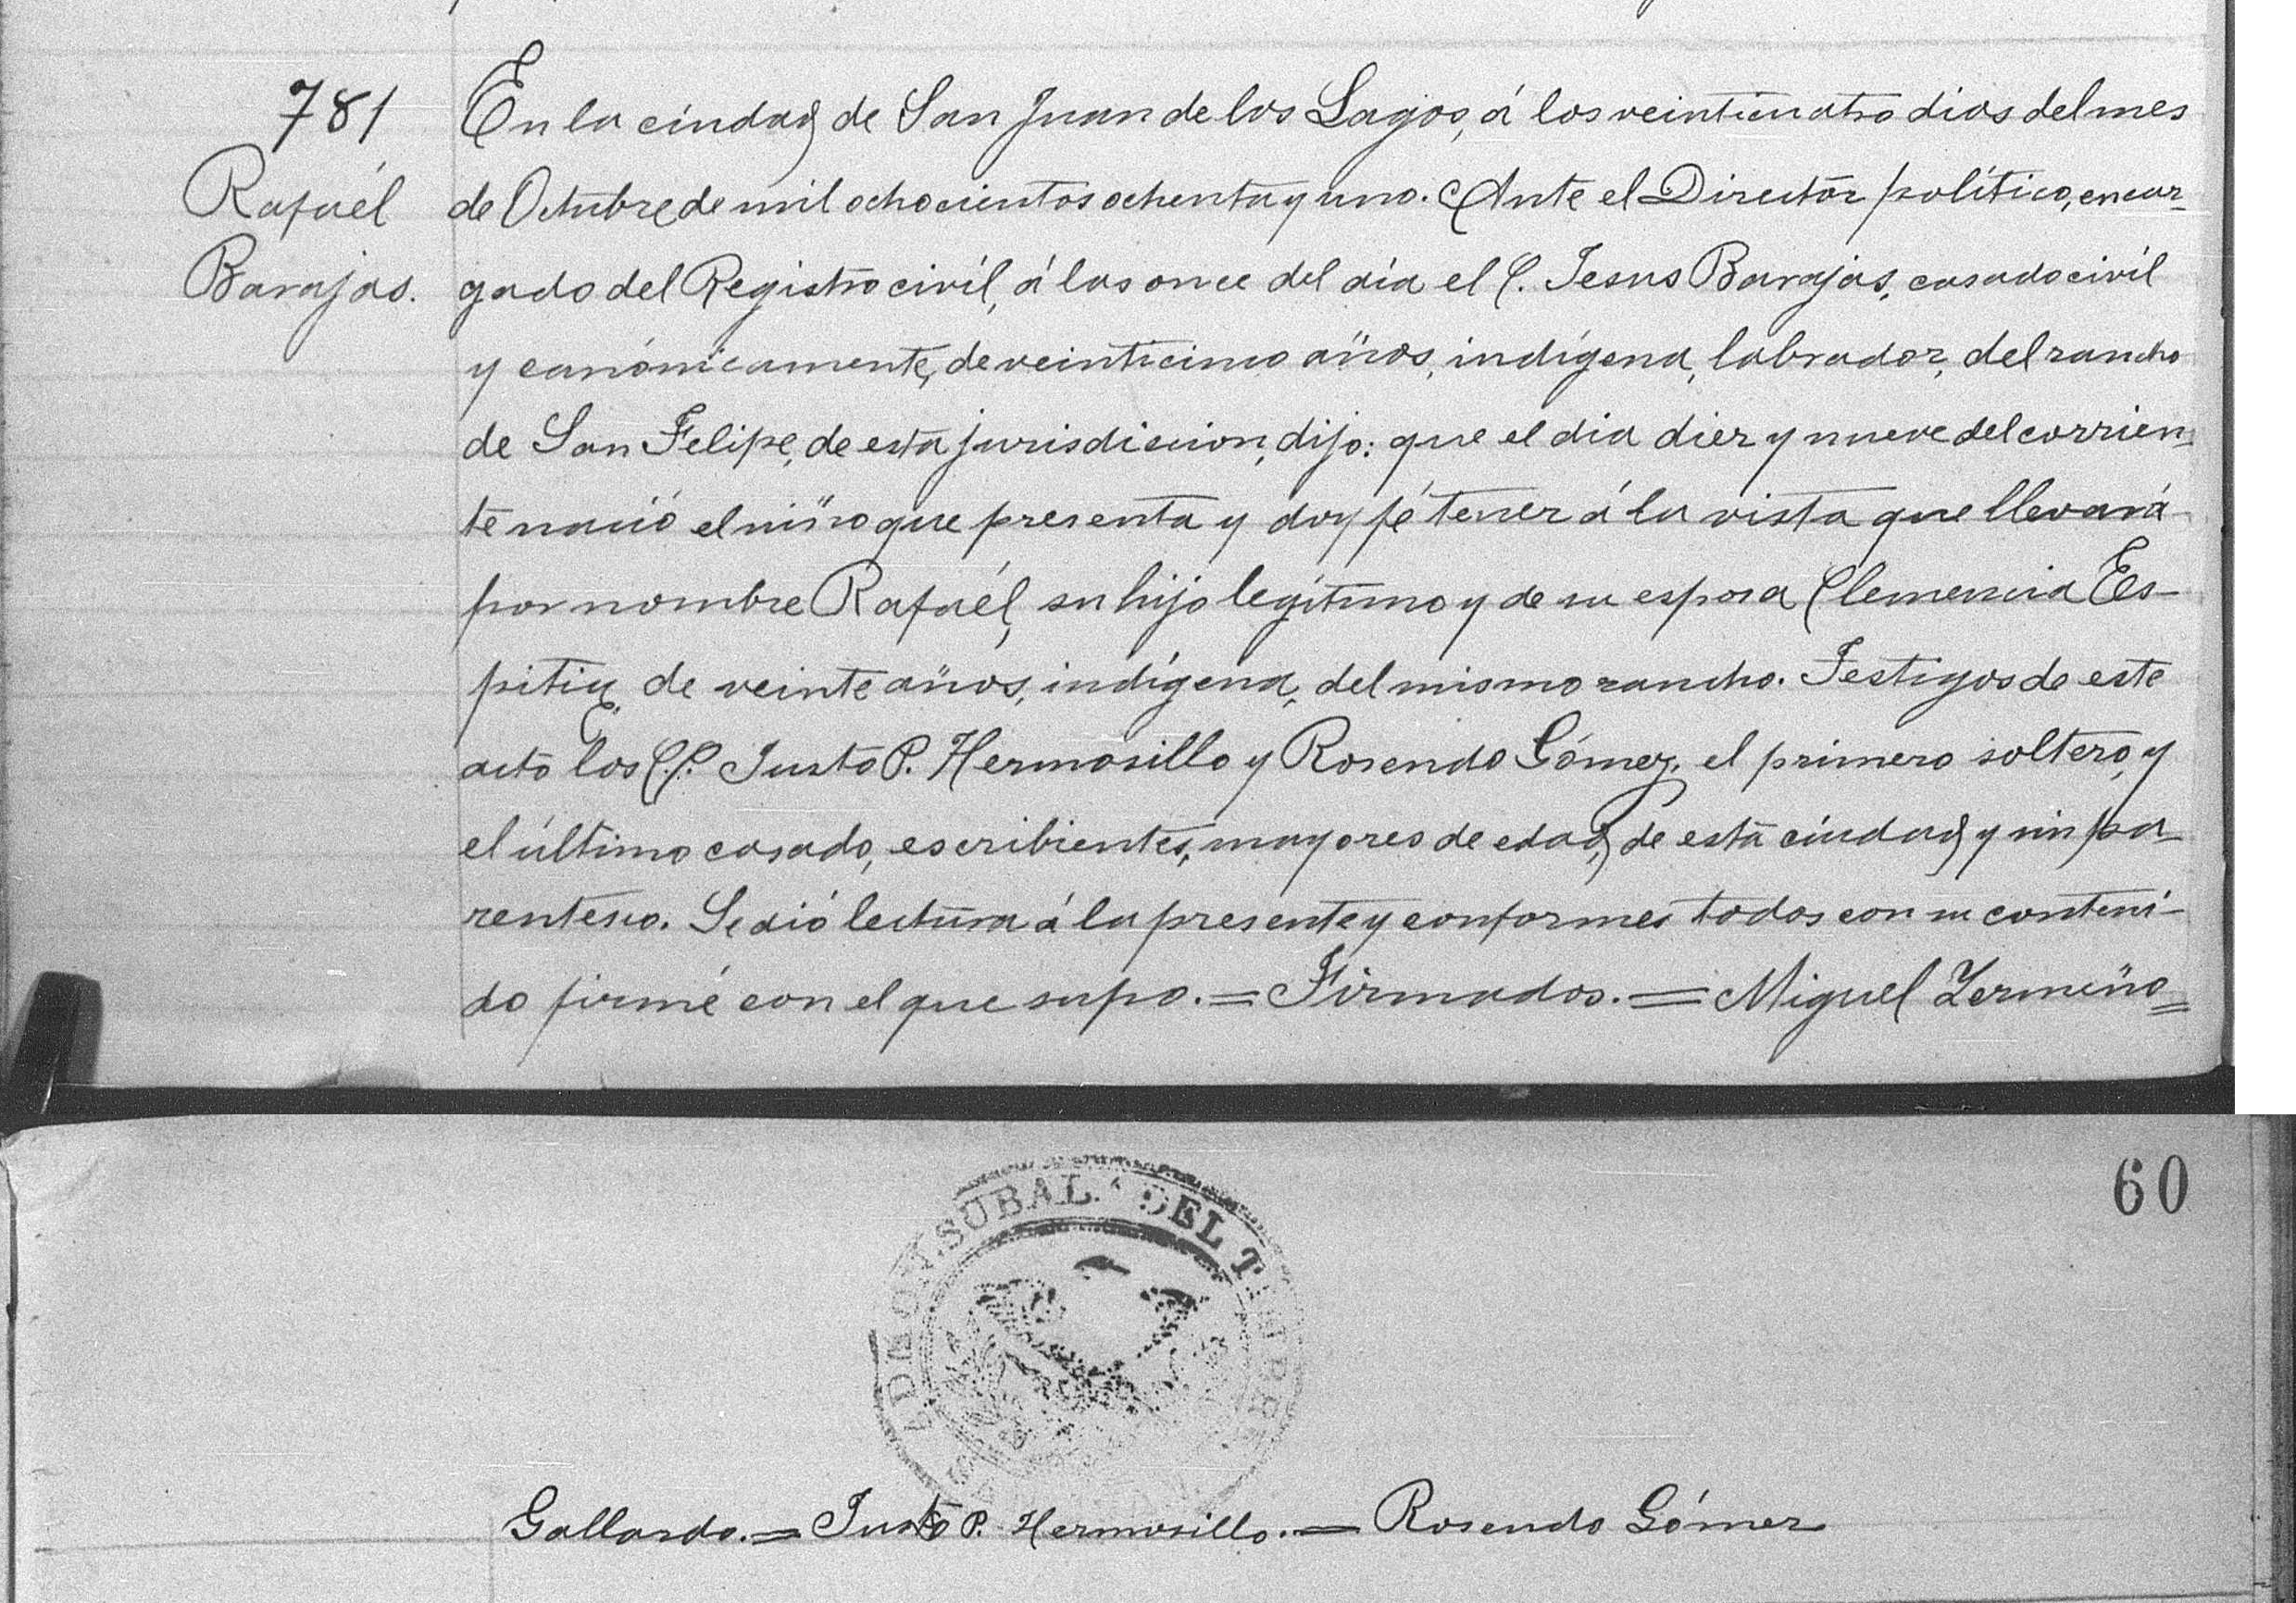 781
Rafaél
Barajas.
En la ciudad de San Juan de los Lagos, á los veinticuatro dias del mes
de Octubre de mil ochocientos ochenta y uno. Ante el Director político, encar-
gado del Registro civil, á las once del dia el C. Jesus Barajas, casado civil
y canónicamente, de veinticinco años, indígena, labrador, del rancho
de San Felipe, de esta jurisdiccion, dijo: que el dia diez y nueve del corrien-
te nació el niño que presenta y doy fé tener á la vista que llevará
por nombre Rafaél, su hijo legítimo y de su esposa Clemencia Es-
pitia, de veinte años, indígena, del mismo rancho. Testigos de este
acto los C.C. Justo P. Hermosillo y Rosendo Gómez, el primero soltero, y
el último casado, escribientes, mayores de edad, de esta ciudad y sin pa-
rentesco. Se dió lectura á la presente y conformes todos con su conteni-
do firmé con el que supo. = Firmados. = Miguel Zermeño =
60
SUBAL. DEL
Gallardo. = Justo P. Hermosillo. = Rosendo Gómez